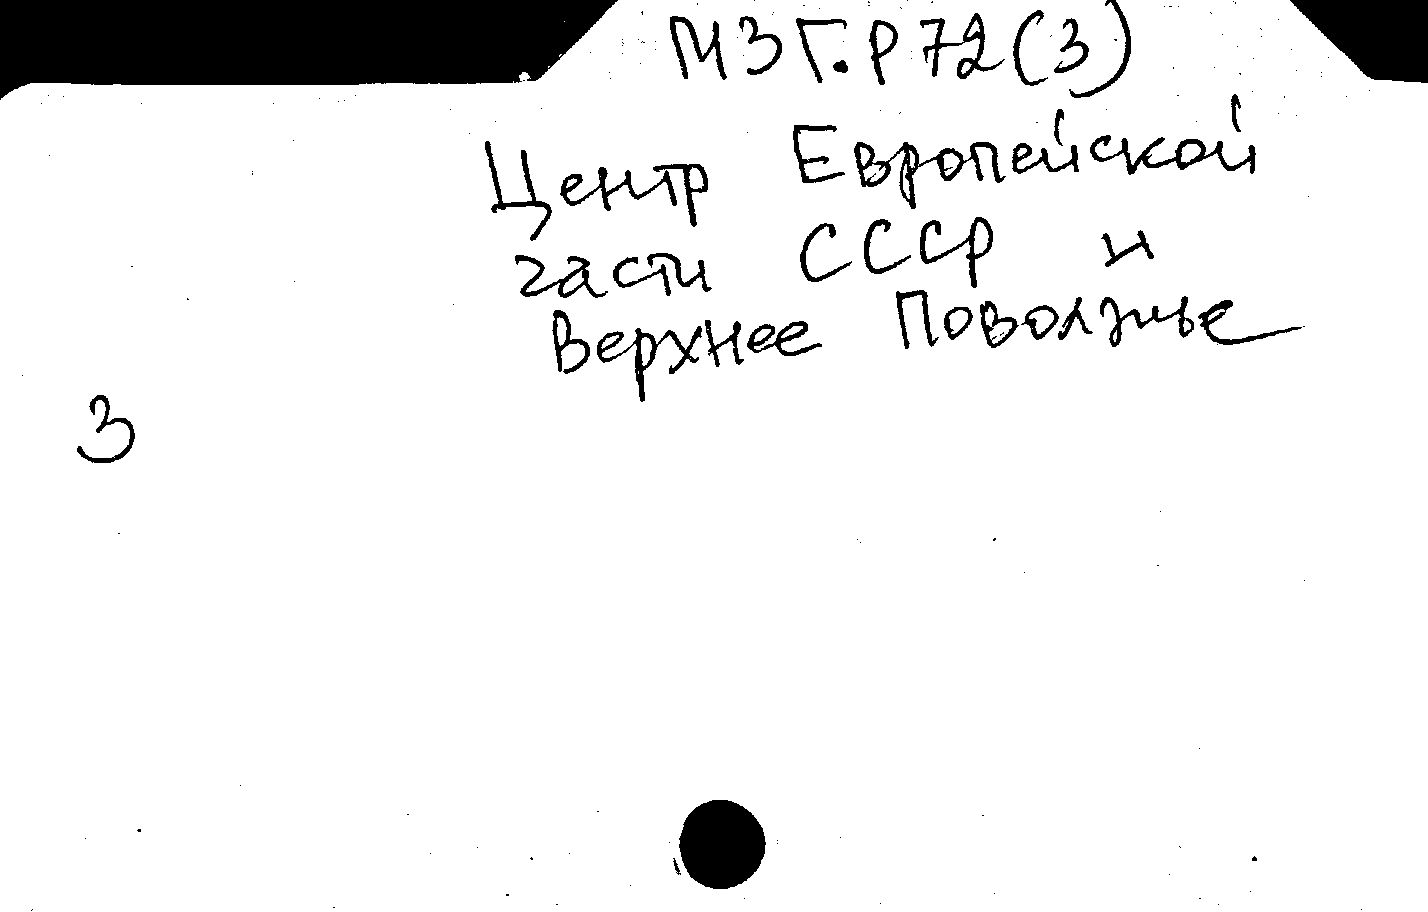 МЗГ.Р72(3)
Центр Европейской
части СССР и
Верхнее Поволжье
3